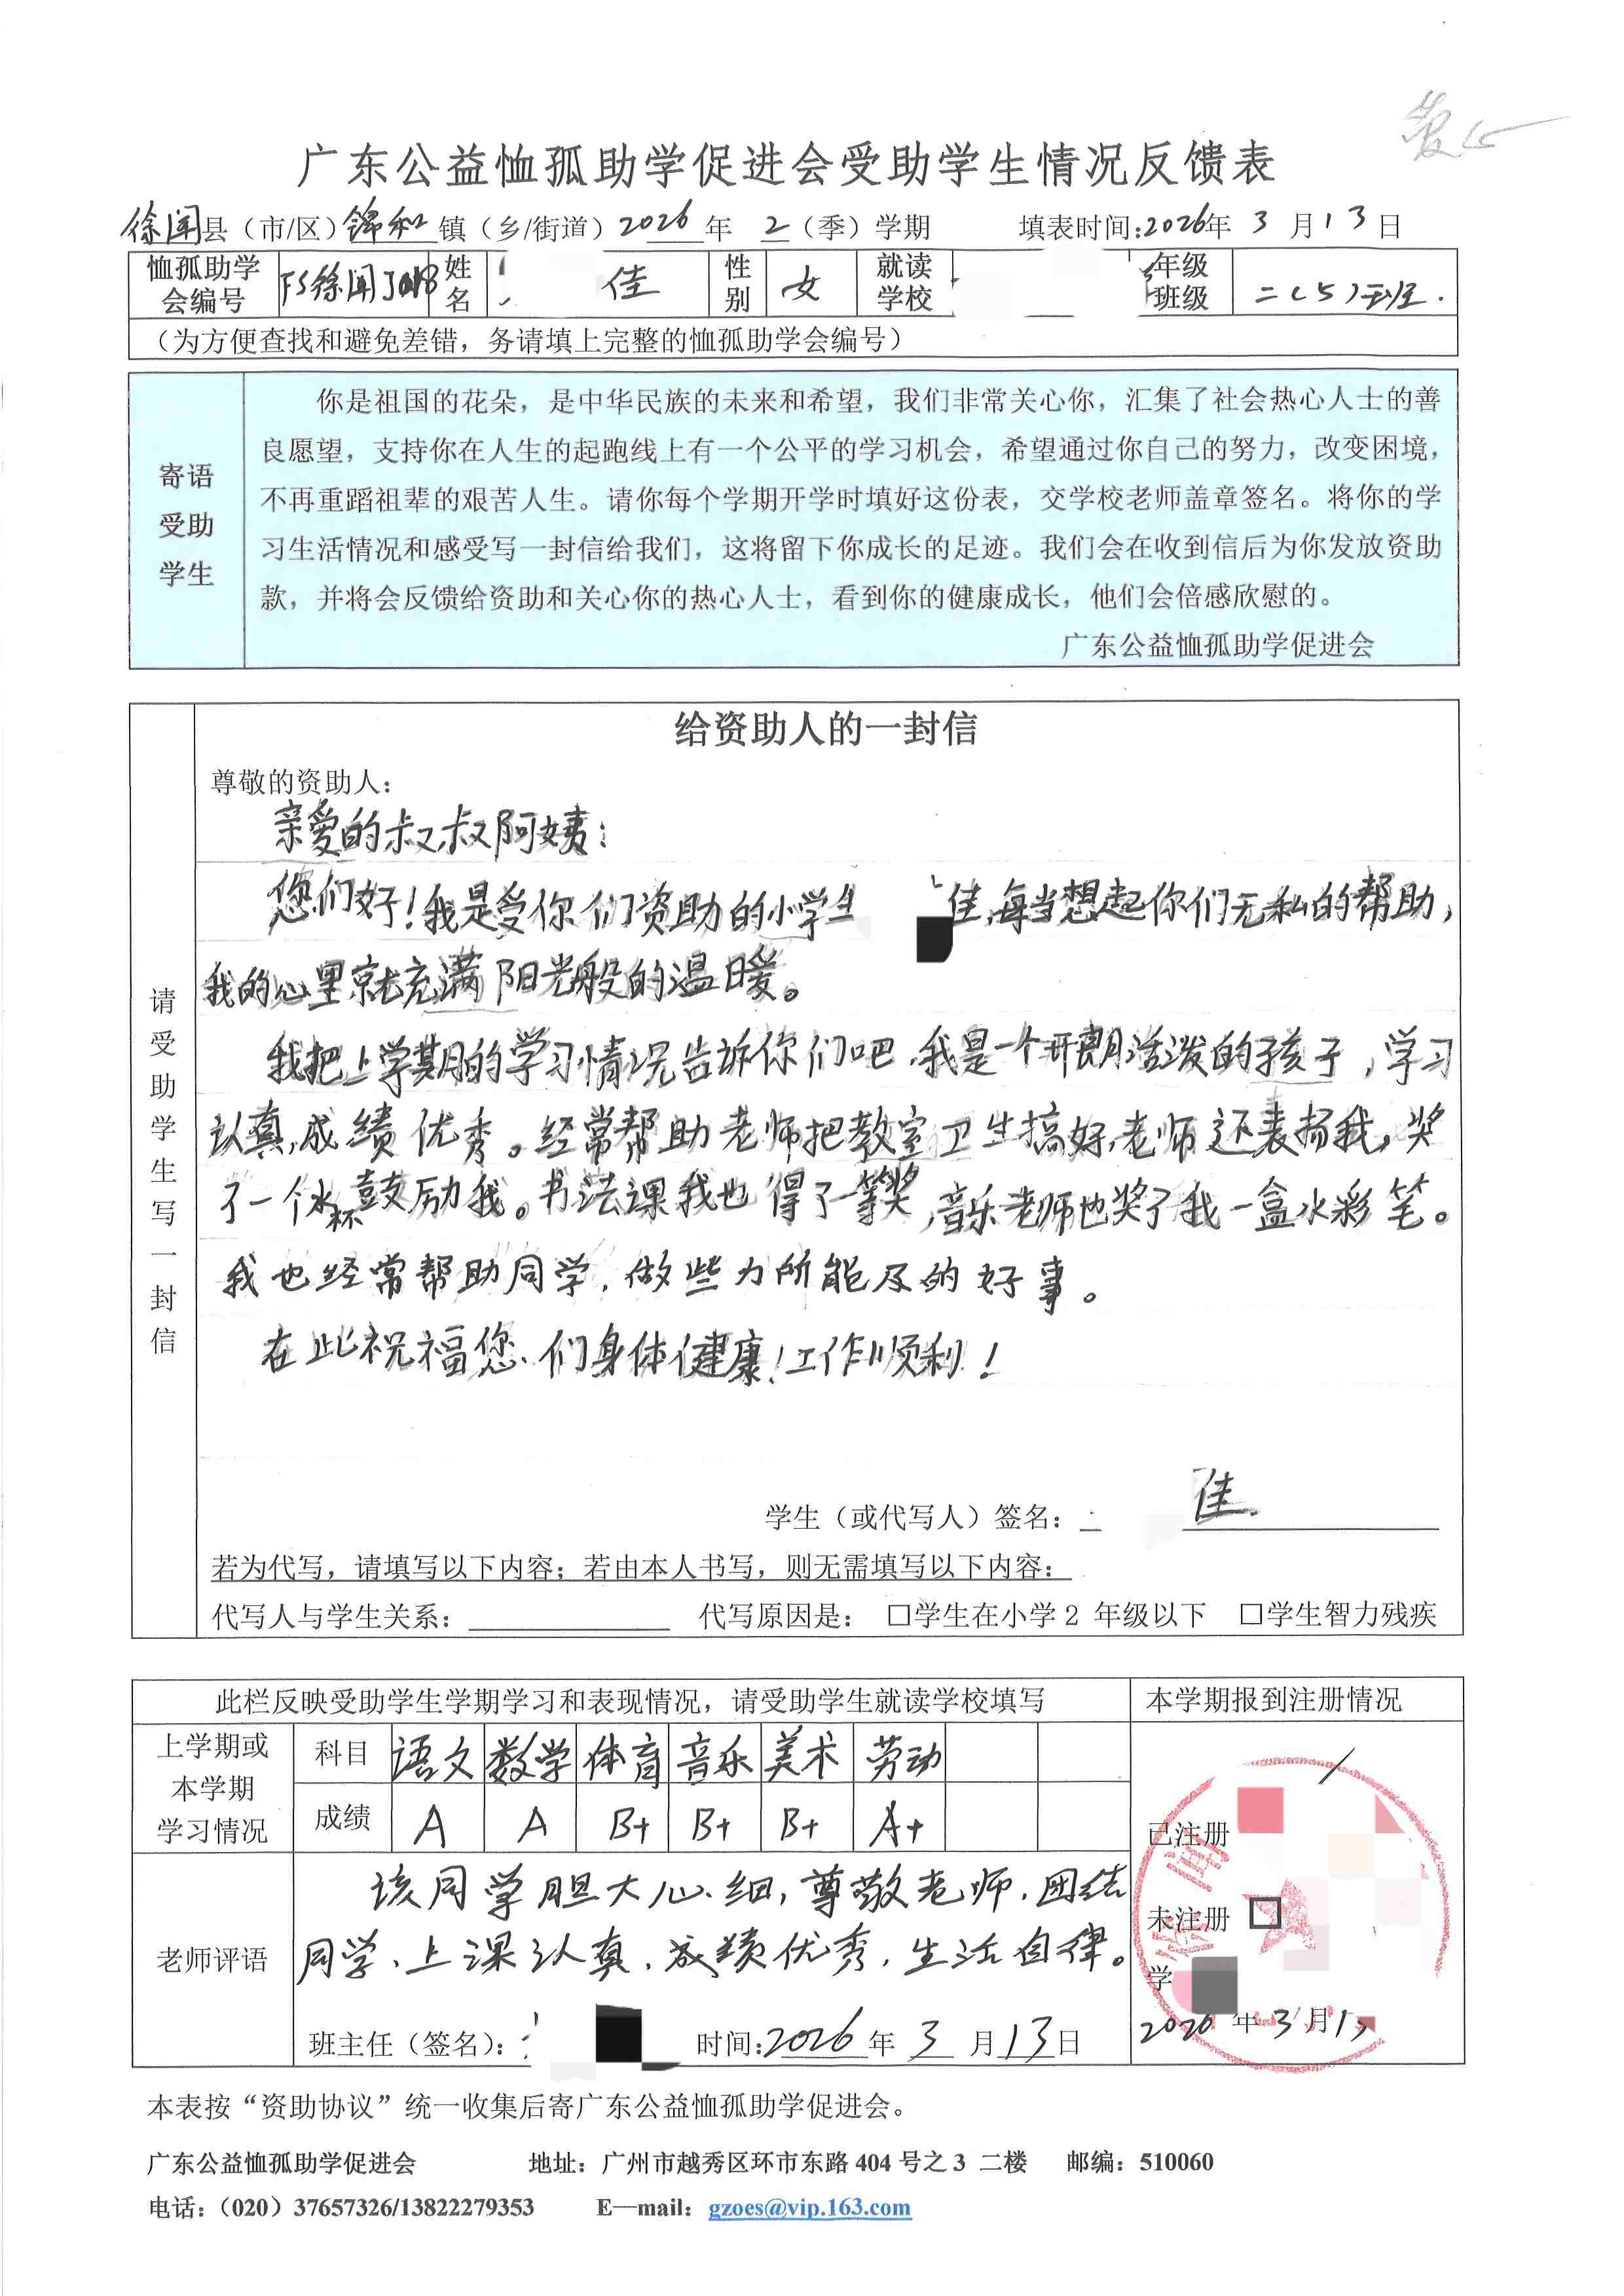 广东公益恤孤助学促进会受助学生情况反馈表
徐闻县（市/区）锦和镇（乡/街道）2026年 2（季）学期 填表时间:2026年 3 月 13 日
恤孤助学会编号 FS徐闻J018 姓名 佳 性别 女 就读学校 年级班级 二（5）班.
（为方便查找和避免差错，务请填上完整的恤孤助学会编号）
寄语受助学生
你是祖国的花朵，是中华民族的未来和希望，我们非常关心你，汇集了社会热心人士的善
良愿望，支持你在人生的起跑线上有一个公平的学习机会，希望通过你自己的努力，改变困境，
不再重蹈祖辈的艰苦人生。请你每个学期开学时填好这份表，交学校老师盖章签名。将你的学
习生活情况和感受写一封信给我们，这将留下你成长的足迹。我们会在收到信后为你发放资助
款，并将会反馈给资助和关心你的热心人士，看到你的健康成长，他们会倍感欣慰的。
广东公益恤孤助学促进会
请受助学生写一封信
给资助人的一封信
尊敬的资助人：
亲爱的叔叔阿姨：
您们好！我是受你们资助的小学生 佳，每当想起你们无私的帮助，
我的心里就充满阳光般的温暖。
我把上学期的学习情况告诉你们吧，我是一个开朗活泼的孩子，学习
认真，成绩优秀。经常帮助老师把教室卫生搞好，老师还表扬我，奖
了一个水杯鼓励我。书法课我也得了一等奖，音乐老师也奖了我一盒水彩笔。
我也经常帮助同学，做些力所能及的好事。
在此祝福您们身体健康！工作顺利！
学生（或代写人）签名： 佳
若为代写，请填写以下内容；若由本人书写，则无需填写以下内容：
代写人与学生关系： 代写原因是： □学生在小学2 年级以下 □学生智力残疾
此栏反映受助学生学期学习和表现情况，请受助学生就读学校填写 本学期报到注册情况
上学期或本学期学习情况 科目 语文 数学 体育 音乐 美术 劳动
成绩 A A B+ B+ B+ A+
已注册
未注册 □
学
2026 年 3 月 13
徐闻
老师评语
该同学胆大心细，尊敬老师，团结
同学，上课认真，成绩优秀，生活自律。
班主任（签名）： 时间:2026 年 3 月 13 日
本表按“资助协议”统一收集后寄广东公益恤孤助学促进会。
广东公益恤孤助学促进会 地址：广州市越秀区环市东路 404 号之 3 二楼 邮编：510060
电话：（020）37657326/13822279353 E—mail：gzoes@vip.163.com